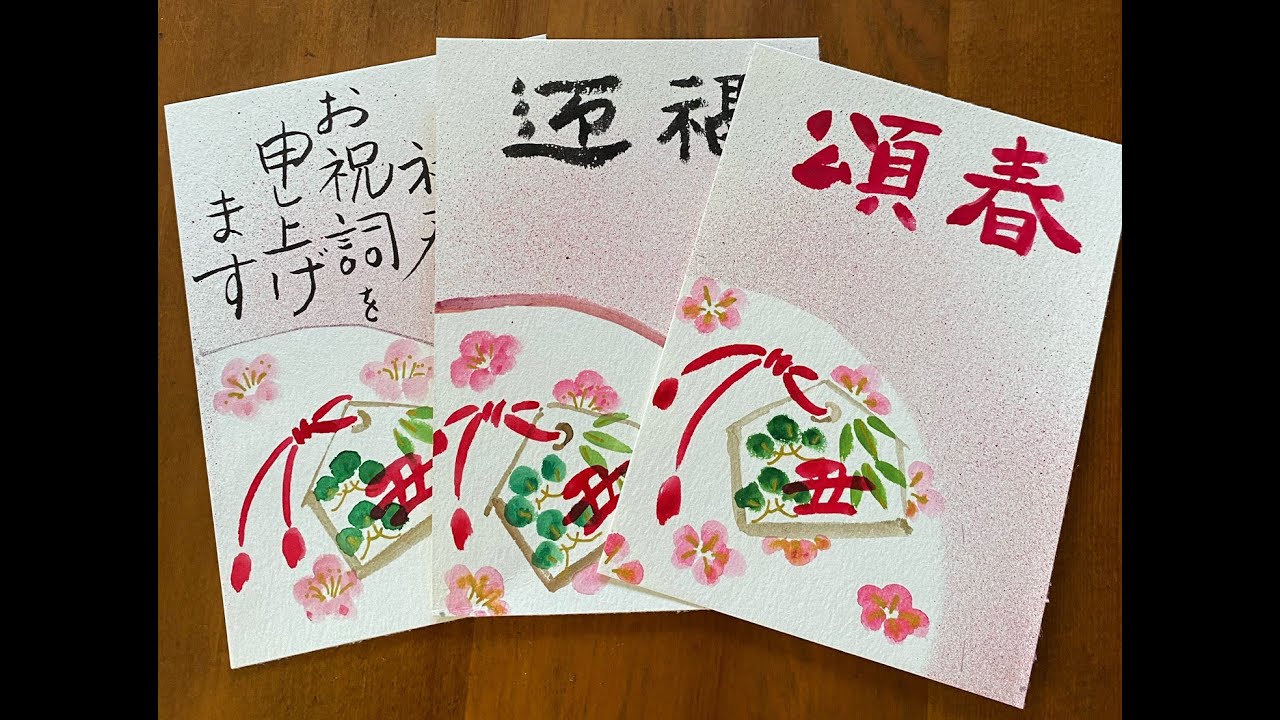 お祝詞を
申し上げ
ます
丑
迎福
丑
頌春
丑